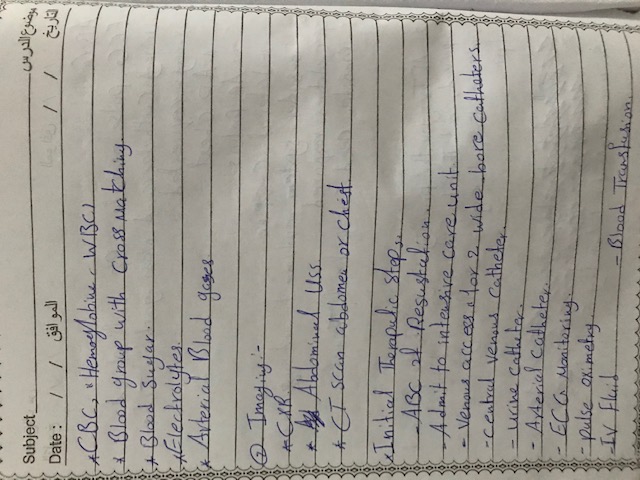 Subject موضوع الدرس
Date: / / الموافق / / التاريخ
* CBC, * Hemoglobine - WBC)
* Blood group with Cross Matching.
* Blood Sugar.
* Electrolytes.
* Arterial Blood gases
② Imaging:-
* CXR
* Abdominal USS
* CT scan abdomen or chest
* Initial Theraputic steps.
- ABC of Resustation.
- Admit to intensive care unit
- Venous access 1 or 2 wide bore catheters.
- central venous catheter
- urine catheter.
- Arterial catheter.
- ECG Monitoring.
- pulse oximetry.
- IV Fluid - Blood Transfusion.